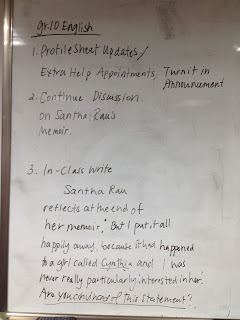 gr.10 English
1. Profile Sheet Updates/
Extra Help Appointments, Turnit in
Announcement
2. Continue Discussion
on Santha Rau's
Memoir.
3. In-Class Write
Santha Rau
reflects at the end of
her memoir, "But I put it all
happily away, because it had happened
to a girl called Cynthia and I was
never really particularly interested in her."
Are you convinced of this statement?